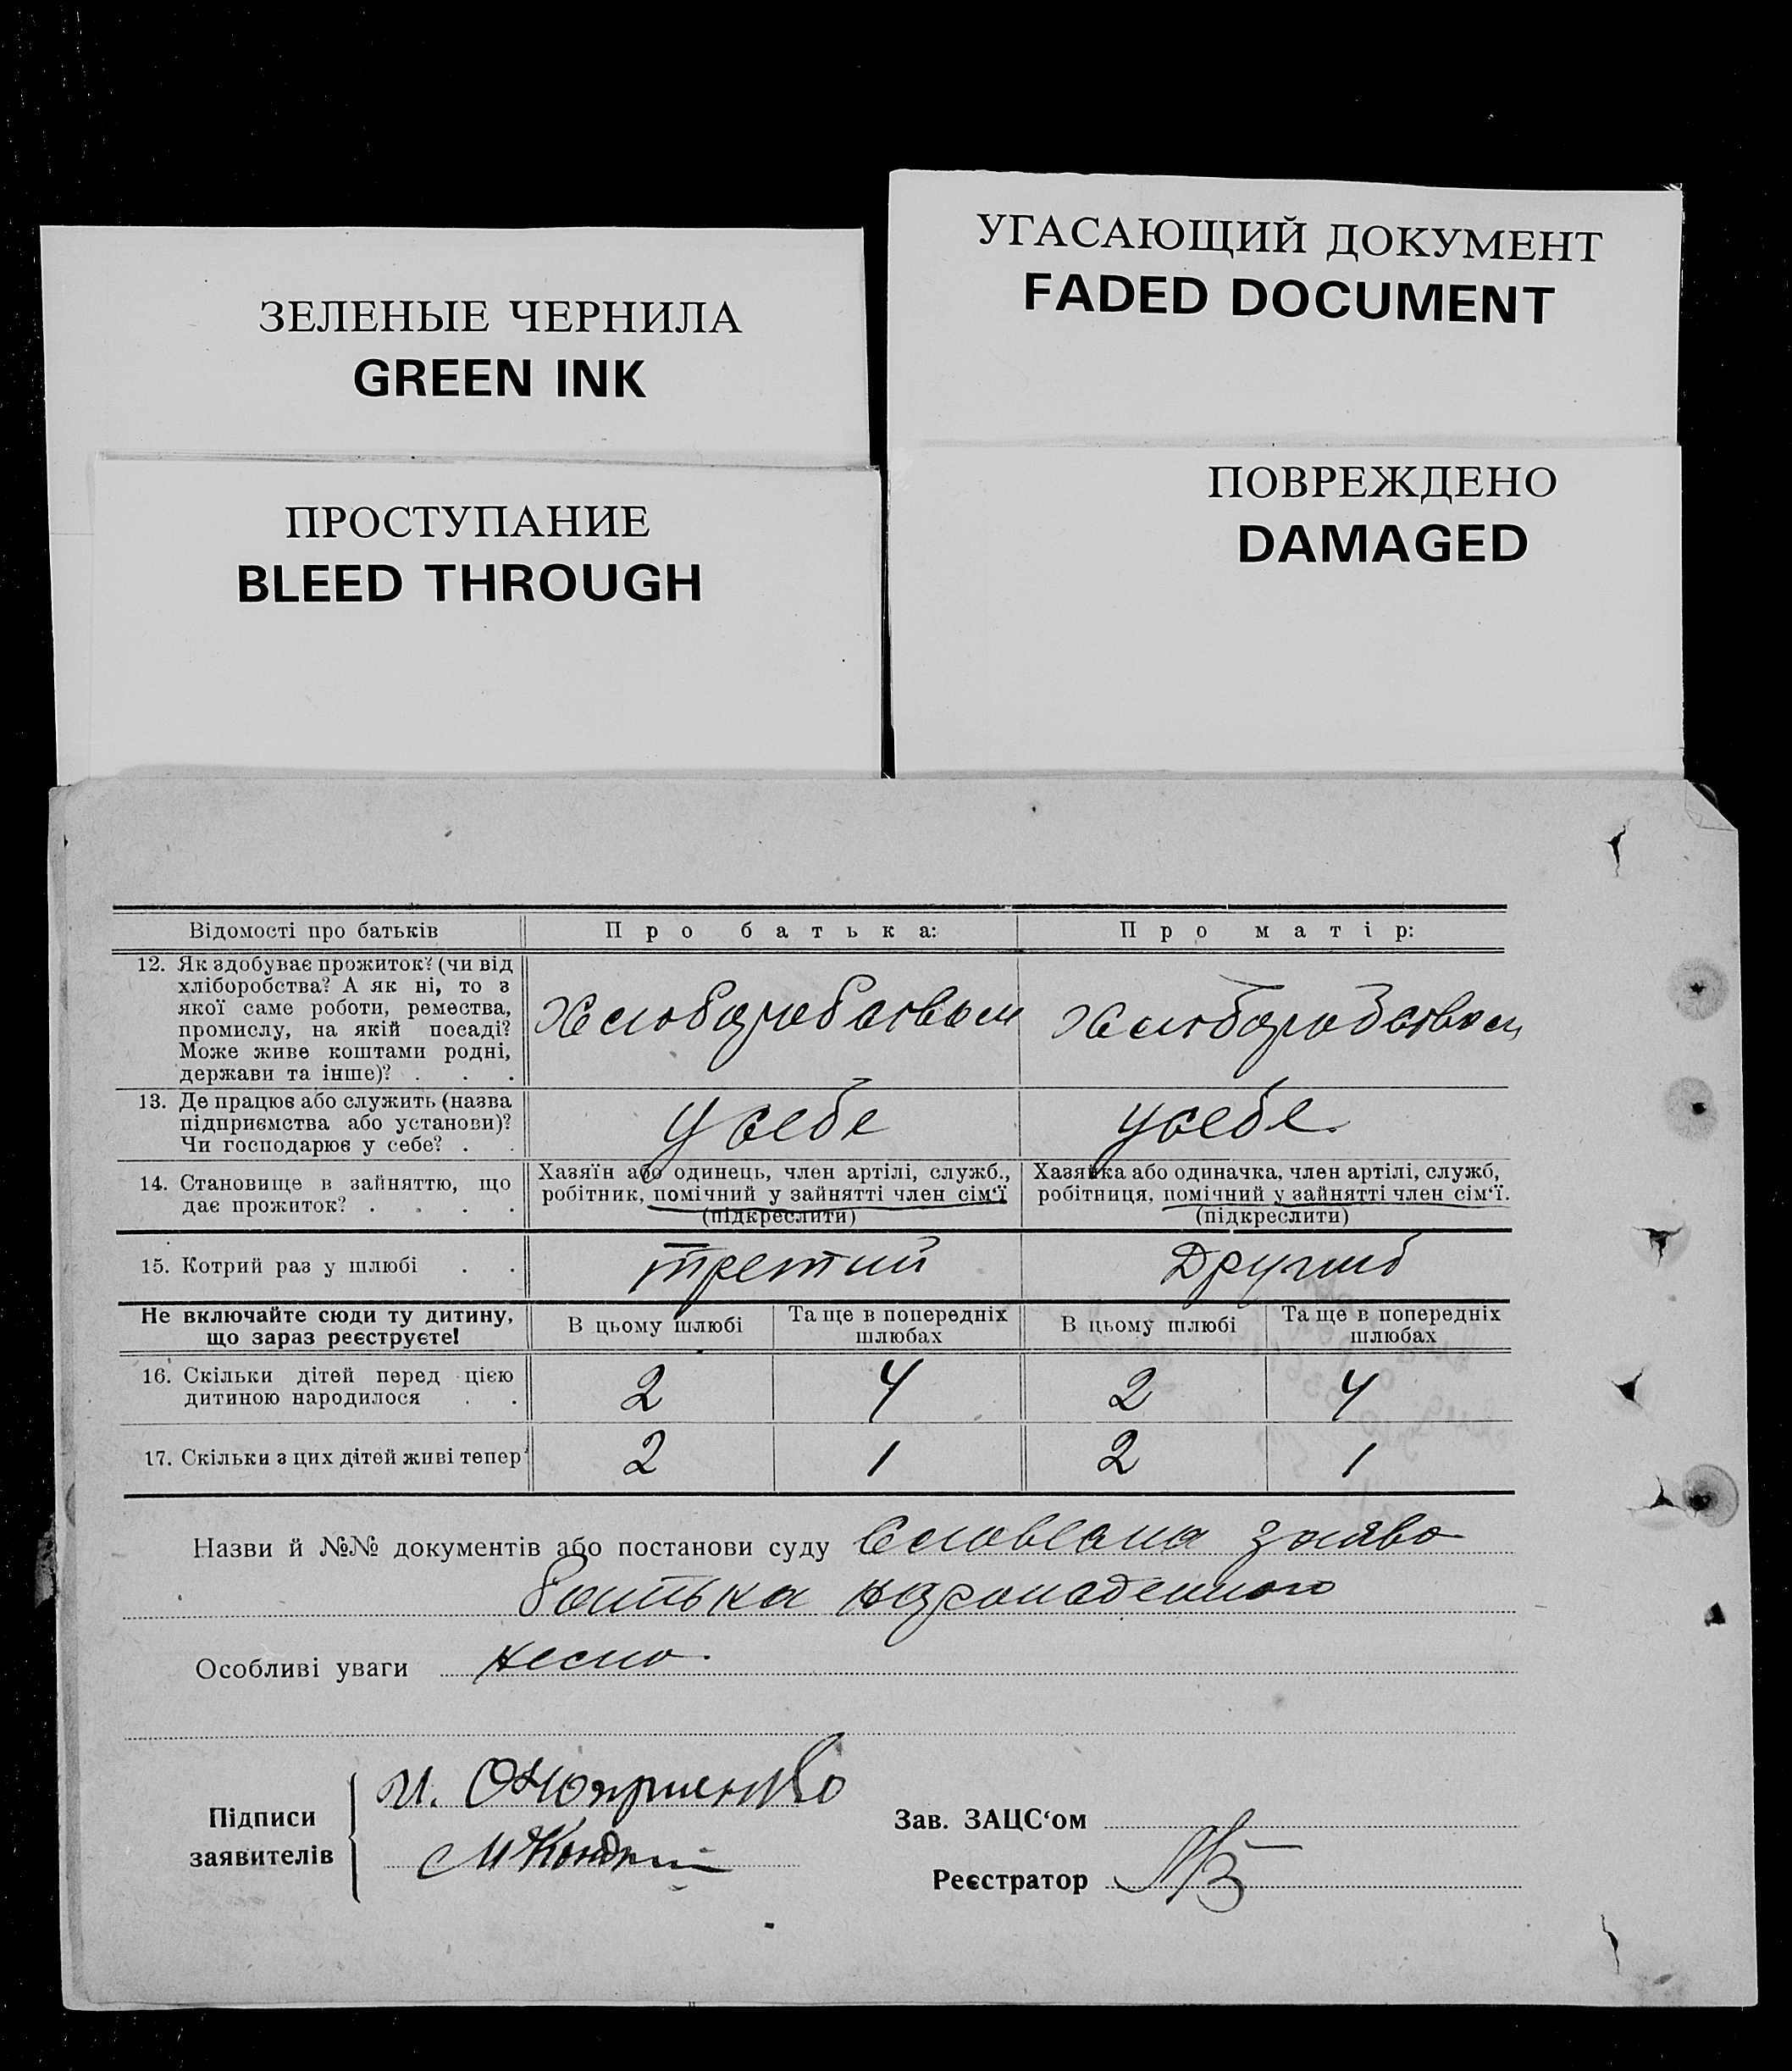 УГАСАЮЩИЙ ДОКУМЕНТ
FADED DOCUMENT
ЗЕЛЕНЫЕ ЧЕРНИЛА
GREEN INK
ПОВРЕЖДЕНО
DAMAGED
ПРОСТУПАНИЕ
BLEED THROUGH
Відомості про батьків Про батька: Про матір:
12. Як здобуває прожиток? (чи від
хліборобства? А як ні, то з
якої саме роботи, ремества,
промислу, на якій посаді?
Може живе коштами родні,
держави та інше)? . . .
Хлюборобством Хлюборобством
13. Де працює або служить (назва
підприємства або установи)?
Чи господарює у себе? . .
у себе у себе.
14. Становище в зайняттю, що
дає прожиток? . . . .
Хазяїн або одинець, член артілі, служб.,
робітник, помічний у зайнятті член сім'ї
(підкреслити)
Хазяйка або одиначка, член артілі, служб,
робітниця, помічний у зайнятті член сім'ї.
(підкреслити)
15. Котрий раз у шлюбі . . третий Другий
Не включайте сюди ту дитину,
що зараз реєструєте!
В цьому шлюбі Та ще в попередніх
шлюбах
В цьому шлюбі Та ще в попередніх
шлюбах
16. Скільки дітей перед цією
дитиною народилося . .
2 4 2 4
17. Скільки з цих дітей живі тепер 2 1 2 1
Назви й №№ документів або постанови суду Словесна заява
батька
Особливі уваги
Підписи
заявителів
И. Оноприенко
Зав. ЗАЦС'ом
Реєстратор